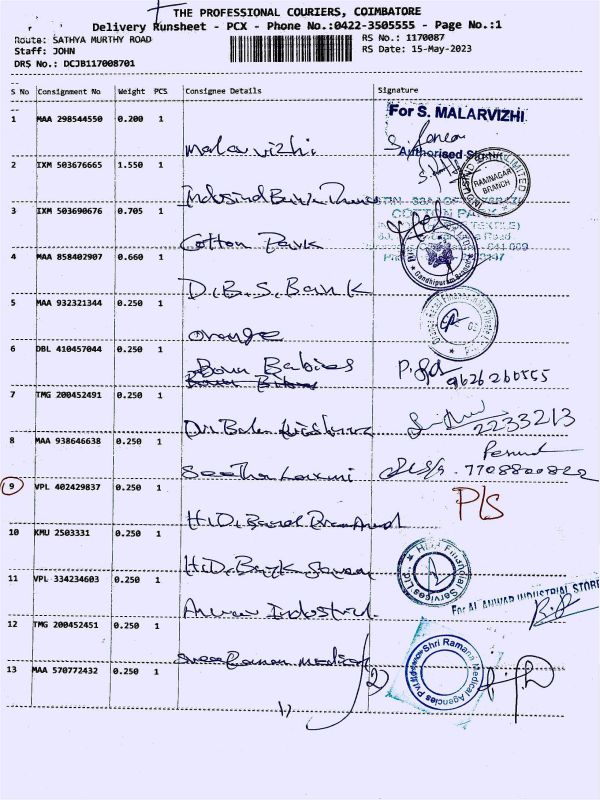 THE PROFESSIONAL COURIERS, COIMBATORE
Delivery Runsheet - PCX - Phone No.:0422-3505555 - Page No.:1
Route: SATHYA MURTHY ROAD
RS No.: 1170087
Staff: JOHN
RS Date: 15-May-2023
DRS No.: DCJB117008701
S No Consignment No Weight PCS Consignee Details Signature
1 MAA 298544550 0.200 1
For S. MALARVIZHI
Malarvizhi
Authorised
2 IXM 503676665 1.550 1
RAMNAGAR BRANCH
Indusind
3 IXM 503690676 0.705 1
COTTON PARK
Cotton Park
4 MAA 858402907 0.660 1
Gandhipuram
D.B.S. Bank
5 MAA 932321344 0.250 1
orange
6 DBL 410457044 0.250 1
Born Babies
9626260555
7 TMG 200452491 0.250 1
2233213
8 MAA 938646638 0.250 1
Seetha Laxmi
7708800822
9 VPL 402429837 0.250 1
P/S
10 KMU 2503331 0.250 1
Financial Services
11 VPL 334234603 0.250 1
For AL ANWAR INDUSTRIAL STORE
Anwar Industrial
12 TMG 200452451 0.250 1
Shri Ramana Medical Agencies Pvt
Sree Raman Medical
13 MAA 570772432 0.250 1